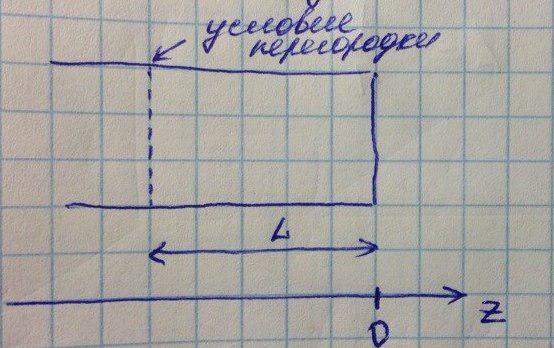 условие
перегородки
L
z
0